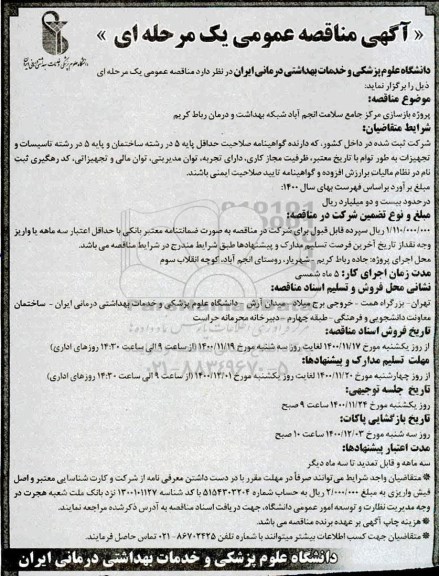 « آگهی مناقصه عمومی یک مرحله ای »
دانشگاه علوم پزشکی و خدمات بهداشتی درمانی ایران در نظر دارد مناقصه عمومی یک مرحله ای
ذیل را برگزار نماید:
موضوع مناقصه:
پروژه بازسازی مرکز جامع سلامت انجم آباد شبکه بهداشت و درمان رباط کریم
شرایط متقاضیان:
شرکت ثبت شده در داخل کشور، که دارنده گواهینامه صلاحیت حداقل پایه ۵ در رشته ساختمان و پایه ۵ در رشته تاسیسات و
تجهیزات به طور توام با تاریخ معتبر، ظرفیت مجاز کاری، دارای تجربه، توان مدیریتی، توان مالی و تجهیزاتی، کد رهگیری ثبت
نام در نظام مالیات بر ارزش افزوده و گواهینامه تایید صلاحیت ایمنی باشند.
مبلغ برآورد براساس فهرست بهای سال ۱۴۰۰:
درحدود بیست و دو میلیارد ریال
مبلغ و نوع تضمین شرکت در مناقصه:
۱/۱۱۰/۰۰۰/۰۰۰ ریال سپرده قابل قبول برای شرکت در مناقصه به صورت ضمانتنامه معتبر بانکی با حداقل اعتبار سه ماهه یا واریز
وجه نقد از تاریخ آخرین فرصت تسلیم مدارک و پیشنهادها طبق شرایط مندرج در شرایط مناقصه می باشد.
محل اجرای پروژه: جاده رباط کریم - شهریار، روستای انجم آباد، کوچه انقلاب سوم
مدت زمان اجرای کار: ۵ ماه شمسی
نشانی محل فروش و تسلیم اسناد مناقصه:
تهران - بزرگراه همت - خروجی برج میلاد - میدان آرش - دانشگاه علوم پزشکی و خدمات بهداشتی درمانی ایران - ساختمان
معاونت دانشجویی و فرهنگی - طبقه چهارم - دبیرخانه محرمانه حراست
تاریخ فروش اسناد مناقصه:
از روز یکشنبه مورخ ۱۴۰۰/۱۱/۱۷ لغایت روز سه شنبه مورخ ۱۴۰۰/۱۱/۱۹ (از ساعت ۹ الی ساعت ۱۴:۳۰ روزهای اداری)
مهلت تسلیم مدارک و پیشنهادها:
از روز چهارشنبه مورخ ۱۴۰۰/۱۱/۲۰ لغایت روز یکشنبه مورخ ۱۴۰۰/۱۲/۰۱ (از ساعت ۹ الی ساعت ۱۴:۳۰ روزهای اداری)
تاریخ جلسه توجیهی:
روز یکشنبه مورخ ۱۴۰۰/۱۱/۲۴ ساعت ۹ صبح
تاریخ بازگشایی پاکات:
روز سه شنبه مورخ ۱۴۰۰/۱۲/۰۳ ساعت ۱۰ صبح
مدت اعتبار پیشنهادها:
سه ماهه و قابل تمدید تا سه ماه دیگر
* متقاضیان واجد شرایط می توانند صرفاً در مهلت مقرر با در دست داشتن معرفی نامه از شرکت و کارت شناسایی معتبر و اصل
فیش واریزی به مبلغ ۲/۰۰۰/۰۰۰ ریال به حساب شماره ۵۱۵۴۳۰۳۲۰۴ با کد شناسه ۱۳۰۰۱۰۱۱۲۷ نزد بانک ملت شعبه هجرت در
وجه مدیریت نظارت و توسعه امور عمومی دانشگاه، جهت دریافت اسناد مناقصه به آدرس ذکر شده مراجعه نمایند.
* هزینه چاپ آگهی بر عهده برنده مناقصه می باشد.
* متقاضیان جهت کسب اطلاعات بیشتر میتوانند با شماره تلفن ۸۶۷۰۲۴۲۵-۰۲۱ تماس حاصل فرمایند.
دانشگاه علوم پزشکی و خدمات بهداشتی درمانی ایران